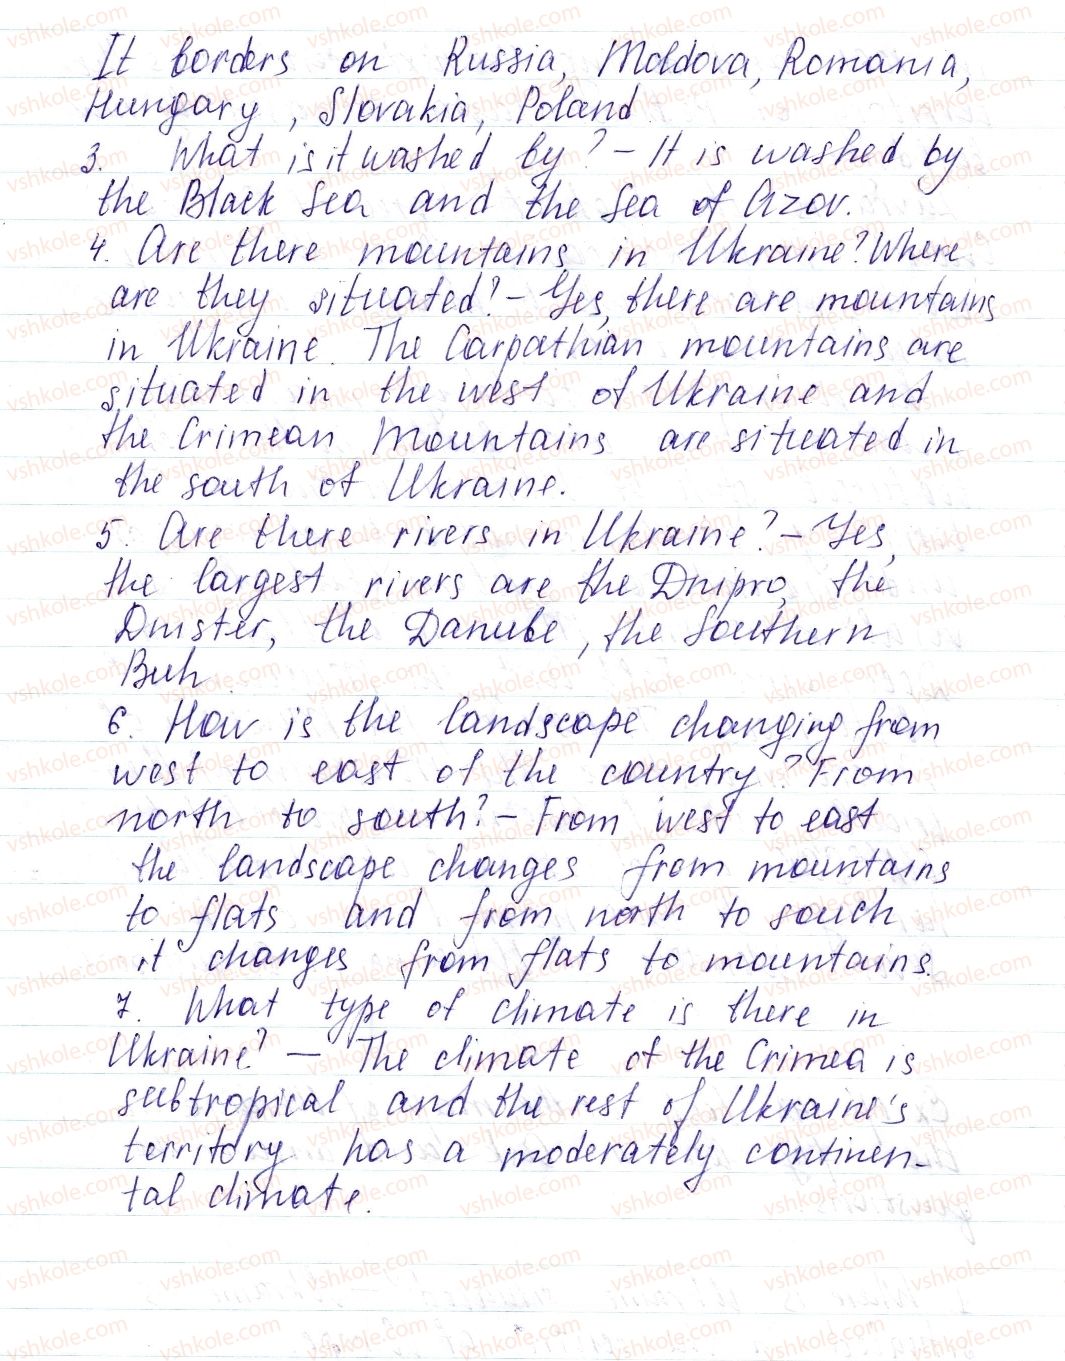 It borders on Russia, Moldova, Romania,
Hungary, Slovakia, Poland.
3. What is it washed by? – It is washed by
the Black Sea and the Sea of Azov.
4. Are there mountains in Ukraine? Where
are they situated? – Yes, there are mountains
in Ukraine. The Carpathian mountains are
situated in the west of Ukraine and
the Crimean Mountains are situated in
the south of Ukraine.
5. Are there rivers in Ukraine? – Yes,
the largest rivers are the Dnipro, the
Dnister, the Danube, the Southern
Buh
6. How is the landscape changing from
west to east of the country? From
north to south? – From west to east
the landscape changes from mountains
to flats and from north to south
it changes from flats to mountains.
7. What type of climate is there in
Ukraine? – The climate of the Crimea is
subtropical and the rest of Ukraine's
territory has a moderately continen-
tal climate.